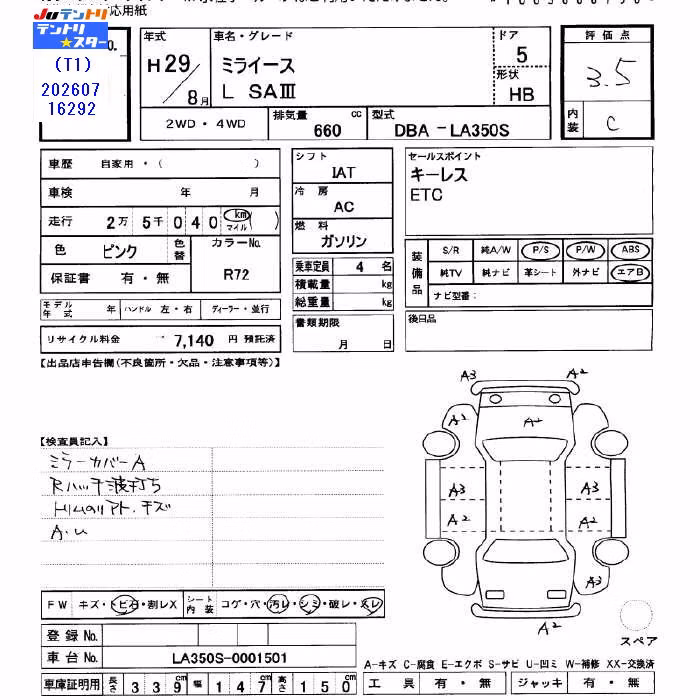 Juテントリ
テントリ
スター
(T1)
202607
16292
応用紙
No.
年式
H29/8月
車名・グレード
ミライース
L SAⅢ
ドア
5
形状
HB
評価点
3.5
内装
C
2WD・4WD
排気量 660 cc
型式 DBA-LA350S
車歴 自家用・( )
車検 年 月
走行 2万 5千 0 4 0 km マイル ( )
色 ピンク 色替
カラーNo. R72
保証書 有・無
モデル年式 年 ハンドル 左・右 ディーラー・並行
リサイクル料金 7,140 円 預託済
シフト
IAT
冷房
AC
燃料
ガソリン
乗車定員 4 名
積載量 kg
総重量 kg
書類期限
月 日
セールスポイント
キーレス
ETC
装備品
S/R 純A/W P/S P/W ABS
純TV 純ナビ 革シート 外ナビ エアB
ナビ型番:
後日品
【出品店申告欄(不良箇所・欠品・注意事項等)】
【検査員記入】
ミラーカバーA
Rハッチ波打ち
トリムのリアト、キズ
A・U
FW キズ・トビ石・割レX
シート内装 コゲ・穴・汚レ・シミ・破レ・スレ
登録No.
車台No. LA350S-0001501
車庫証明用 長さ 339 幅 147 高さ 150
A3 A2
A2 A2 A2
A3 A3
A2 A2
A3
A2
スペア
A-キズ C-腐食 E-エクボ S-サビ U-凹ミ W-補修 XX-交換済
工具 有・無 ジャッキ 有・無